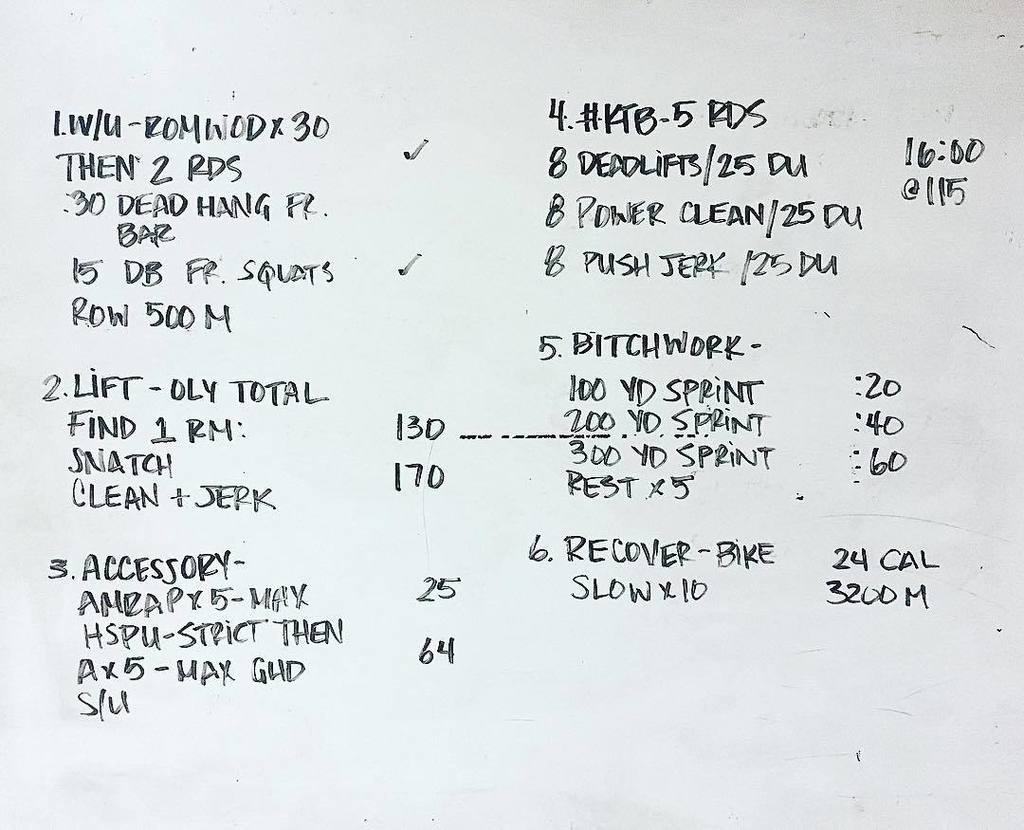 1. W/U - ROMWOD x 30
THEN 2 RDS ✓
:30 DEAD HANG FR.
BAR
15 DB FR. SQUATS ✓
ROW 500 M
2. LIFT - OLY TOTAL
FIND 1 RM: 130
SNATCH
CLEAN + JERK 170
3. ACCESSORY -
AMRAP x 5 - MAX 25
HSPU - STRICT THEN
A x 5 - MAX GHD 64
S/U
4. #KTB - 5 RDS
8 DEADLIFTS/25 DU 16:00
8 POWER CLEAN/25 DU @115
8 PUSH JERK /25 DU
5. BITCHWORK -
100 YD SPRINT :20
200 YD SPRINT :40
300 YD SPRINT :60
REST x 5
6. RECOVER - BIKE 24 CAL
SLOW x 10 3200 M